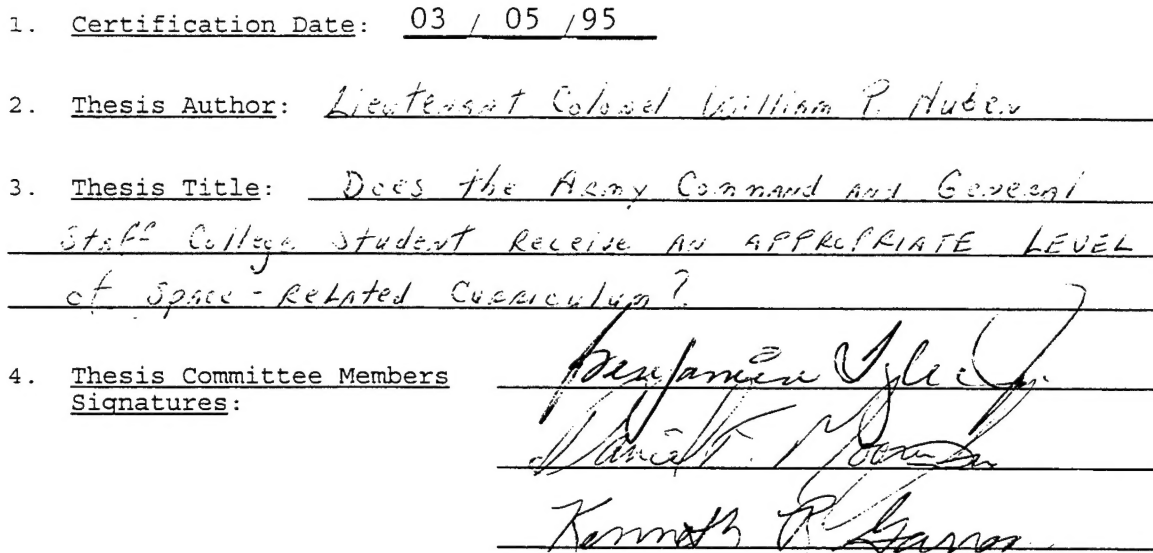 1. Certification Date: 03 / 05 /95
2. Thesis Author: Lieutenant Colonel William P. Huber
3. Thesis Title: Does the Army Command and General
Staff College Student Receive AN APPROPRIATE LEVEL
of Space-Related Curriculum?
4. Thesis Committee Members
Signatures:
Benjamin
Daniel T.
Kenneth R